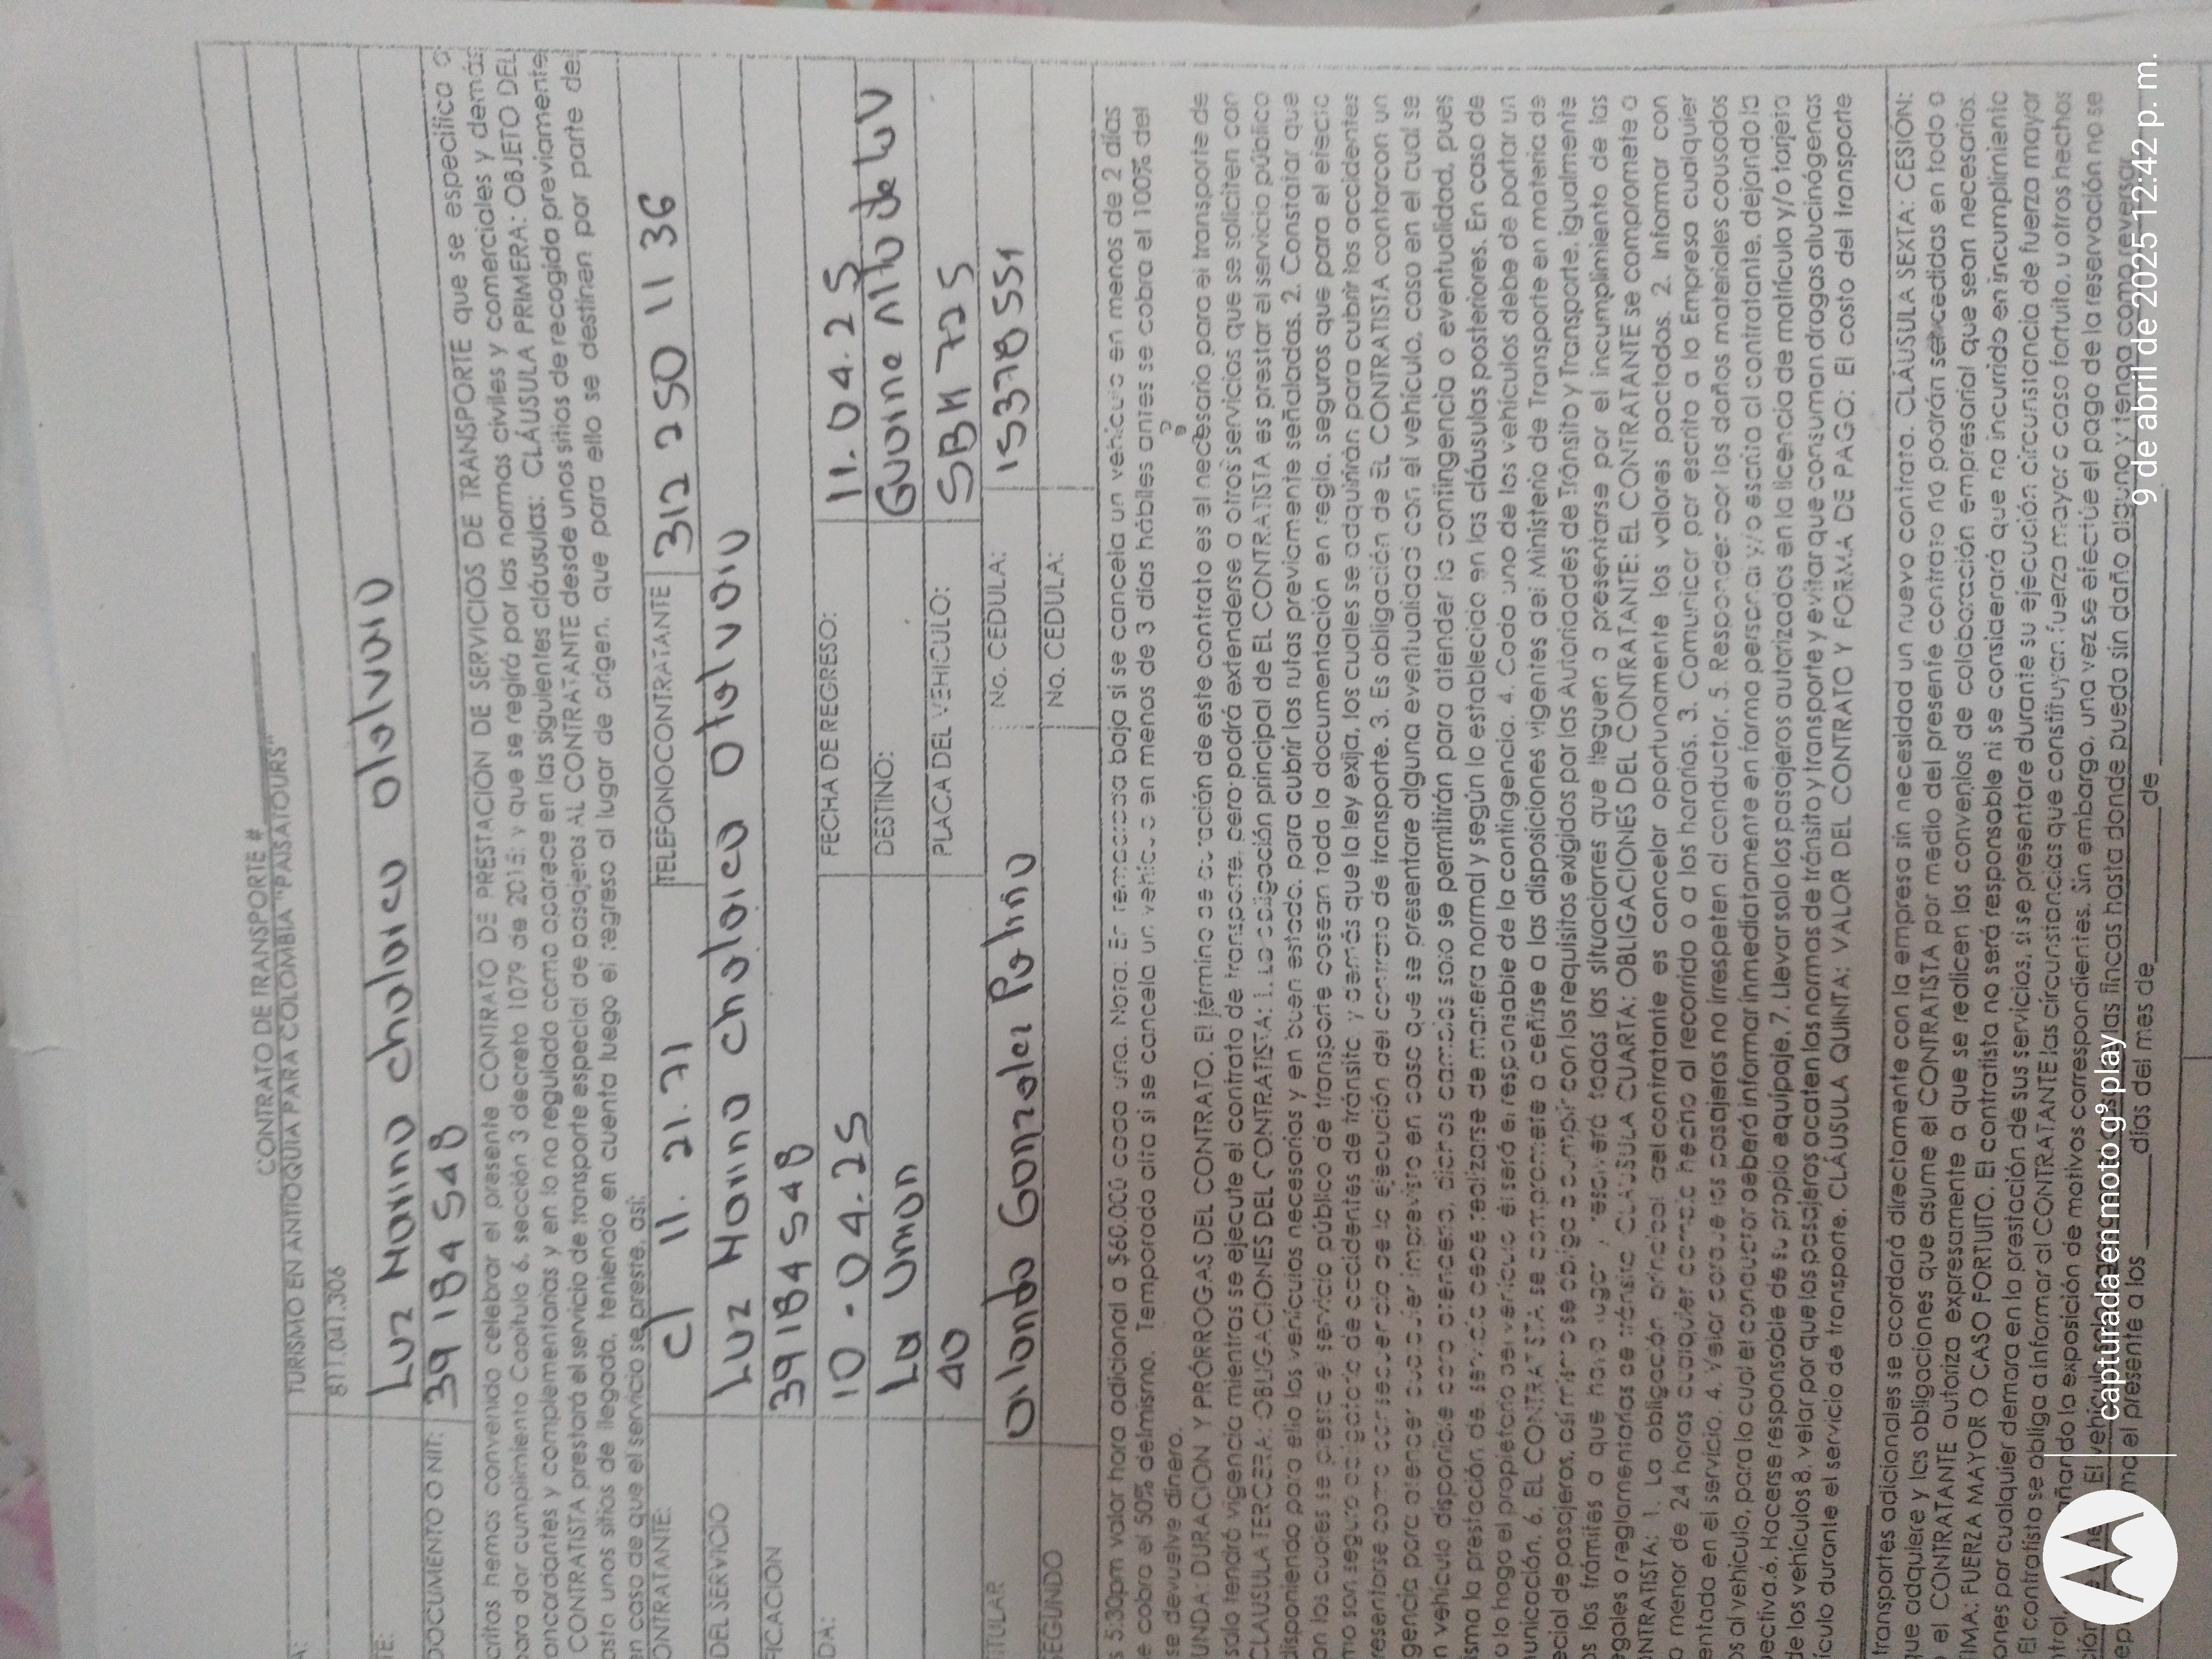 CONTRATO DE TRANSPORTE #
TURISMO EN ANTIOQUIA PARA COLOMBIA "PAISATOURS"
811.041.306
Luz Marina cholarca otalvaro
DOCUMENTO O NIT: 39184548
critos hemos convenido celebrar el presente CONTRATO DE PRESTACIÓN DE SERVICIOS DE TRANSPORTE que se especifica a
para dar cumplimiento Capitulo 6, sección 3 decreto 1079 de 2015; y que se regirá por las normas civiles y comerciales y demás
oncordantes y complementarias y en lo no regulado como aparece en las siguientes cláusulas: CLÁUSULA PRIMERA: OBJETO DEL
CONTRATISTA prestará el servicio de transporte especial de pasajeros AL CONTRATANTE desde unos sitios de recogida previamente
asta unos sitios de llegada, teniendo en cuenta luego el regreso al lugar de origen, que para ello se destinen por parte del
en caso de que el servicio se preste, así:
ONTRATANTE: cl 11. 21. 71 TELEFONOCONTRATANTE 312 250 11 36
DEL SERVICIO Luz Marina cholarca Otalvaro
FICACION 39184548
DA: 10-04.25 FECHA DE REGRESO: 11.04.25
La Union DESTINO: Guarne Alto de la V
40 PLACA DEL VEHICULO: SBK 725
TITULAR Orlando Gonzalez Patiño No. CEDULA: 15378551
SEGUNDO No. CEDULA:
s 5:30pm valor hora adicional a $60.000 cada una. Nota: En temporada baja si se cancela un vehículo en menos de 2 días
e cobra el 50% delmismo. Temporada alta si se cancela un vehículo en menos de 3 días hábiles antes se cobra el 100% del
se devuelve dinero.
UNDA: DURACION Y PRÓRROGAS DEL CONTRATO. El término de duración de este contrato es el necesario para el transporte de
solo tendrá vigencia mientras se ejecute el contrato de transporte, pero podrá extenderse a otros servicios que se soliciten con
CLAUSULA TERCERA: OBLIGACIONES DEL CONTRATISTA: 1. La obligación principal de EL CONTRATISTA es prestar el servicio público
disponiendo para ello los vehículos necesarios y en buen estado, para cubrir las rutas previamente señaladas. 2. Constatar que
on los cuales se presta el servicio público de transporte posean toda la documentación en regla, seguros que para el efecto
mo son seguro obligatorio de accidentes de tránsito y demás que la ley exija, los cuales se adquirirán para cubrir los accidentes
resentarse como consecuencia de la ejecución del contrato de transporte. 3. Es obligación de EL CONTRATISTA contarcon un
gencia para atender cualquier imprevisto en caso que se presentare alguna eventualidad con el vehículo, caso en el cual se
n vehículo disponible para atenderlo, dichos cambios solo se permitirán para atender la contingencia o eventualidad, pues
isma la prestación del servicio debe realizarse de manera normal y según lo establecido en las cláusulas posteriores. En caso de
o lo haga el propietario del vehículo él será el responsable de la contingencia. 4. Cada uno de los vehículos debe de portar un
unicación. 6. EL CONTRATISTA se compromete a ceñirse a las disposiciones vigentes del Ministerio de Transporte en materia de
ecial de pasajeros, así mismo se obliga a cumplir con los requisitos exigidos por las Autoridades de Tránsito y Transporte, igualmente
os los trámites a que haya lugar y resolverá todas las situaciones que lleguen a presentarse por el incumplimiento de las
egales o reglamentarias de tránsito. CLÁUSULA CUARTA: OBLIGACIONES DEL CONTRATANTE: EL CONTRATANTE se compromete a
ONTRATISTA: 1. La obligación principal del contratante es cancelar oportunamente los valores pactados. 2. Informar con
o menor de 24 horas cualquier cambio hecho al recorrido o a los horarios. 3. Comunicar por escrito a la Empresa cualquier
entada en el servicio. 4. Velar porque los pasajeros no irrespeten al conductor. 5. Responder por los daños materiales causados
os al vehículo, para lo cual el conductor deberá informar inmediatamente en forma personal y/o escrita al contratante, dejando la
pectiva.6. Hacerse responsable de su propio equipaje. 7. Llevar solo los pasajeros autorizados en la licencia de matrícula y/o tarjeta
de los vehículos 8. velar por que los pasajeros acaten las normas de tránsito y transporte y evitar que consuman drogas alucinógenas
ículo durante el servicio de transporte. CLÁUSULA QUINTA: VALOR DEL CONTRATO Y FORMA DE PAGO: El costo del transporte
transportes adicionales se acordará directamente con la empresa sin necesidad un nuevo contrato. CLÁUSULA SEXTA: CESIÓN:
que adquiere y las obligaciones que asume el CONTRATISTA por medio del presente contrato no podrán ser cedidas en todo o
el CONTRATANTE autoriza expresamente a que se realicen los convenios de colaboración empresarial que sean necesarios.
IMA: FUERZA MAYOR O CASO FORTUITO. El contratista no será responsable ni se considerará que ha incurrido en incumplimiento
ones por cualquier demora en la prestación de sus servicios, si se presentare durante su ejecución circunstancia de fuerza mayor
El contratista se obliga a informar al CONTRATANTE las circunstancias que constituyan fuerza mayor o caso fortuito, u otros hechos
ntrol, añando la exposición de motivos correspondientes. Sin embargo, una vez se efectúe el pago de la reservación no se
ción El vehículo solo las fincas hasta donde pueda sin daño alguno y tenga como reversar
ma el presente a los ______ días del mes de ______ de ______
capturada en moto g⁹ play
9 de abril de 2025 12:42 p. m.